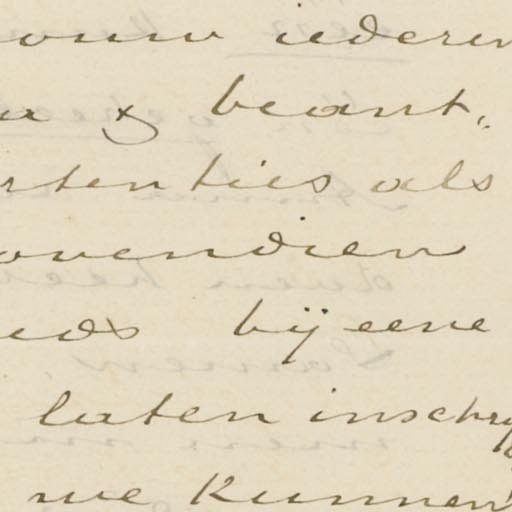 ouw iederen
a & beant.
rtenties als
ovendien
eds bij eene
laten inschrij
we kunnen